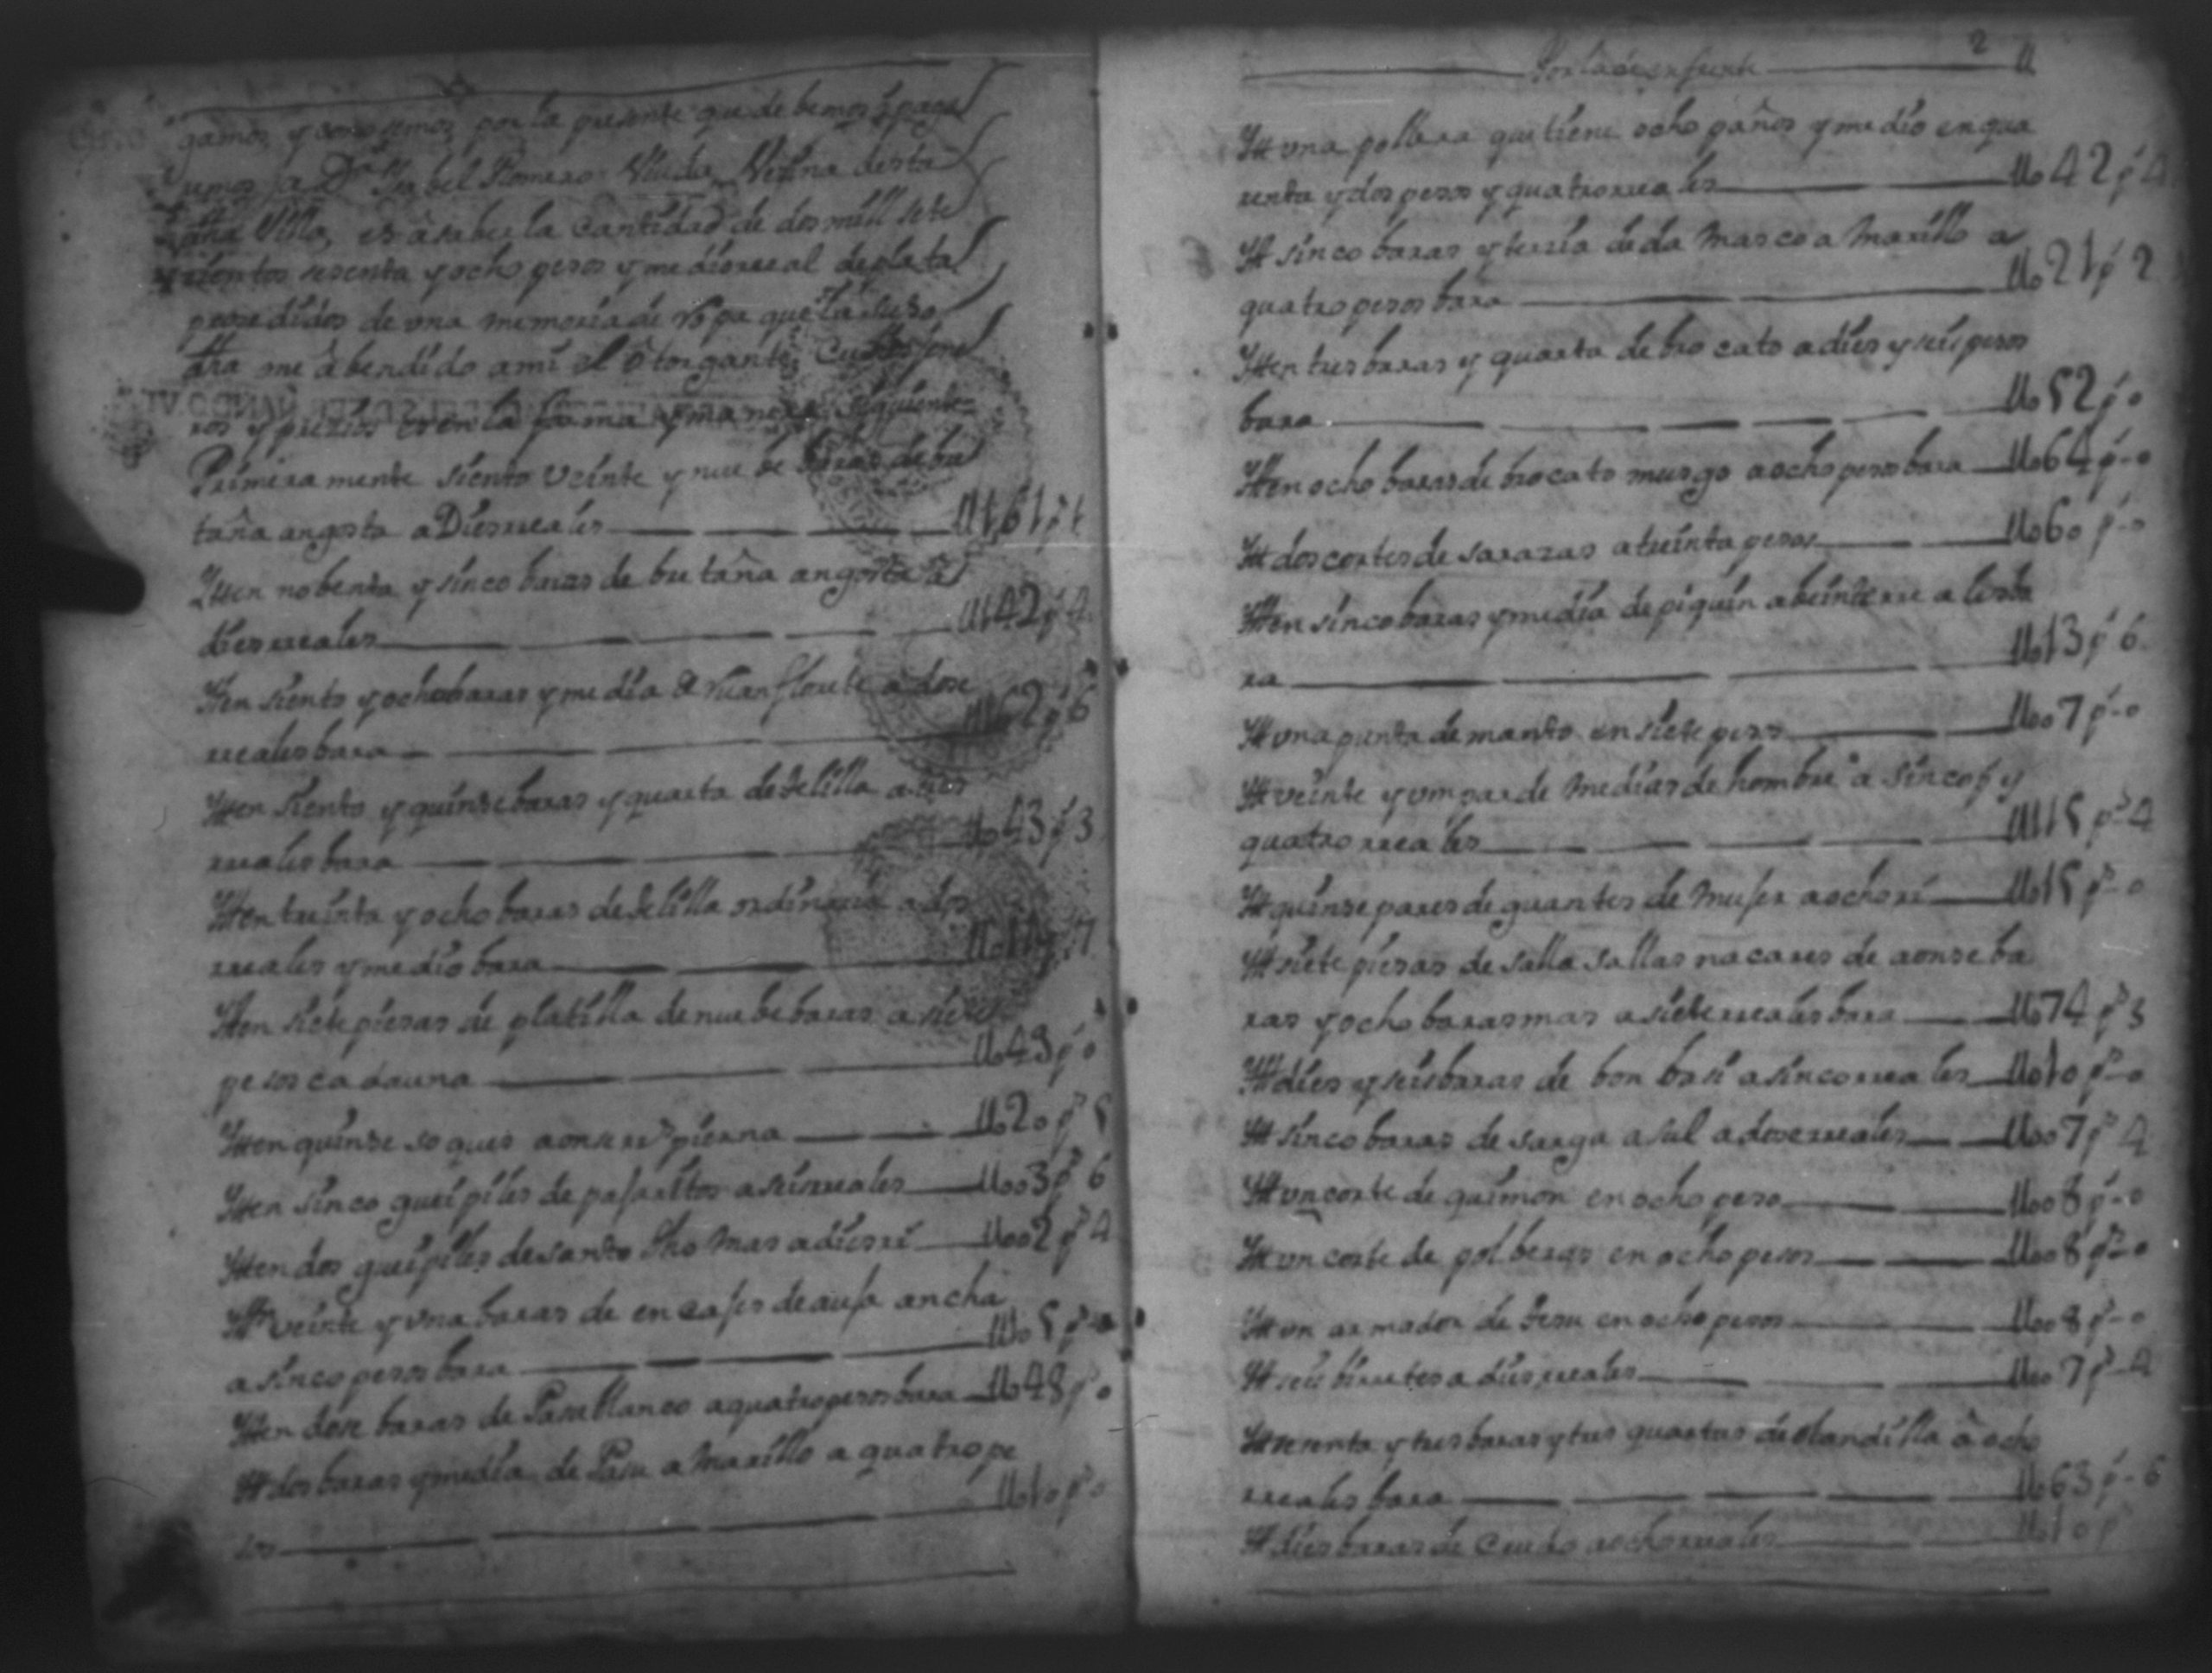 gamos y conosemos por la presente que debemos y paga
remos a Da Ysabel Romero Viuda Vezina desta
dha Villa, es â saber la Cantidad de dos mill sete
sientos sesenta y ocho pesos y medio rreal de plata
prosedidos de una memoria de ropa que la suso
dha me â bendido a mi el otorgante Cuios gene
ros y presios es en la forma y manera siguiente
Primera mente siento veinte y nuebe baras de bre
taña angosta a Dies rreales 161 ps 1
Yten nobenta y sinco baras de bretaña angosta â
dies rreales 142 ps 4
Yten siento y ocho baras y media de ruan florete a dose
rreales bara 162 ps 6
Yten Siento y quinse baras y quarta de telilla a tres
rreales bara U043 ps 3
Yten treinta y ocho baras de telilla ordinaria a dos
rreales y medio bara U011 ps 7
Yten siete piesas de platilla de nuebe baras a siete
pesos cada una U049 ps 0
Yten quinse soques a onse rrs pierna U020 ps 5
Yten sinco gueipiles de pajaritos a seis rreales U003 ps 6
Yten dos gueipiles de santo thomas a dies rrs U002 ps 4
Yten veinte y una baras de encajes de aufa ancha
a sinco pesos bara U105 ps
Yten dose baras de Rasu blanco a quatro pesos bara U048 ps 0
Yt dos baras y media de Rasu a marillo a quatro pe
sos U010 ps 0
Por la de enfrente U
2
Yt una pollera que tiene ocho paños y medio en qua
renta y dos pesos y quatro rreales U042 ps 4
Yt sinco baras y tersia de damasco a Marillo a
quatro pesos bara U021 ps 2
Yten tres baras y quarta de brocato a dies y seis pesos
bara U052 ps 0
Yten ocho baras de brocato musgo a ocho pesos bara U064 ps 0
Yt dos cortes de sarazas a treinta pesos U060 ps 0
Yten sinco baras y media de piquin a beinte rreales ba
ra U013 ps 6
Yt una punta de manto en siete pesos U007 ps 0
Yt veinte y un par de Medias de hombre a sinco ps y
quatro rreales U115 ps 4
Yt quinse pares de guantes de Mujer a ocho rrs U015 ps 0
Yt siete piesas de salla sallas nacares de a onse ba
ras y ocho baras mas a siete rreales bara U074 ps 3
Yt dies y seis baras de bonbasi a sinco rreales U010 ps 0
Yt sinco baras de sarga asul a dose rreales U007 ps 4
Yt un corte de quimon en ocho peso U008 ps 0
Yt un corte de polberas en ocho pesos U008 ps 0
Yt un armador de tesu en ocho pesos U008 ps 0
Yt seis birretes a dies rreales U007 ps 4
Yt sesenta y tres baras y tres quartas de olandilla â ocho
rreales bara U063 ps 6
Yt dies baras de Crudo a ocho rreales U010 ps